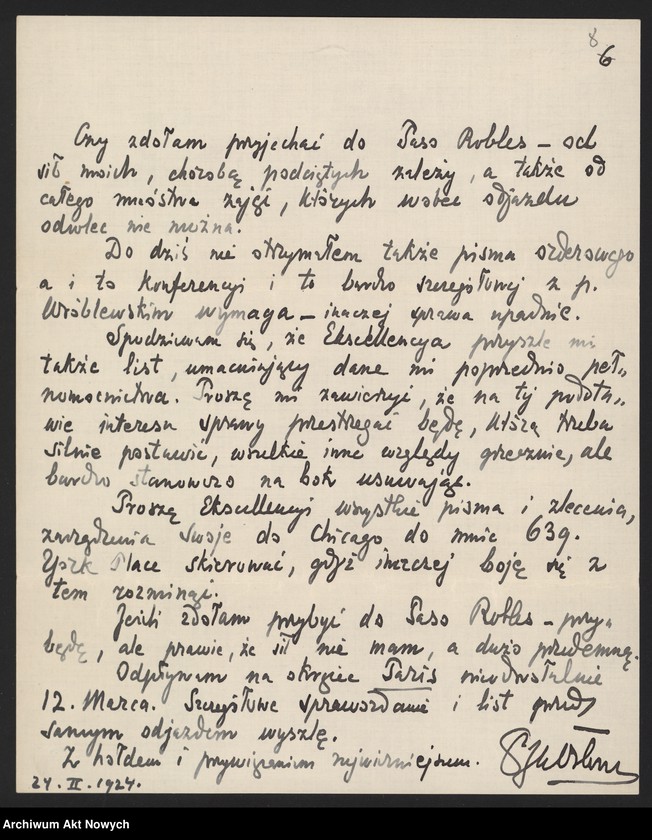 8
6
Czy zdołam przyjechać do Paso Robles – od
sił moich, chorobą podciętych zależy, a także od
całego mnóstwa zajęć, których wobec odjazdu
odwlec nie można.
Do dziś nie otrzymałem także pisma orderowego
a i to konferencyi i to bardzo szczegółowej z p.
Wróblewskim wymaga – inaczej sprawa upadnie.
Spodziewam się, że Ekscellencya przyszle mi
także list, umacniający dane mi poprzednio peł„
nomocnictwa. Proszę mi zawierzyć, że na tej podsta„
wie interesu sprawy przestrzegać będę, którą trzeba
silnie postawić, wszelkie inne względy grzecznie, ale
bardzo stanowczo na bok usuwając.
Proszę Ekscellencyi wszystkie pisma i zlecenia,
zarządzenia swoje do Chicago do mnie 639.
York Place skierować, gdyż inaczej boję się z
tem rozminąć.
Jeśli zdołam przybyć do Paso Robles – przy„
będę, ale prawie, że sił nie mam, a dużo przedemną.
Odpływam na okręcie Paris nieodwołalnie
12. Marca. Szczegółowe sprawozdanie i list przed
samym odjazdem wyszlę.
Z hołdem i przywiązaniem najwierniejszem.
24. II. 1924.
Archiwum Akt Nowych